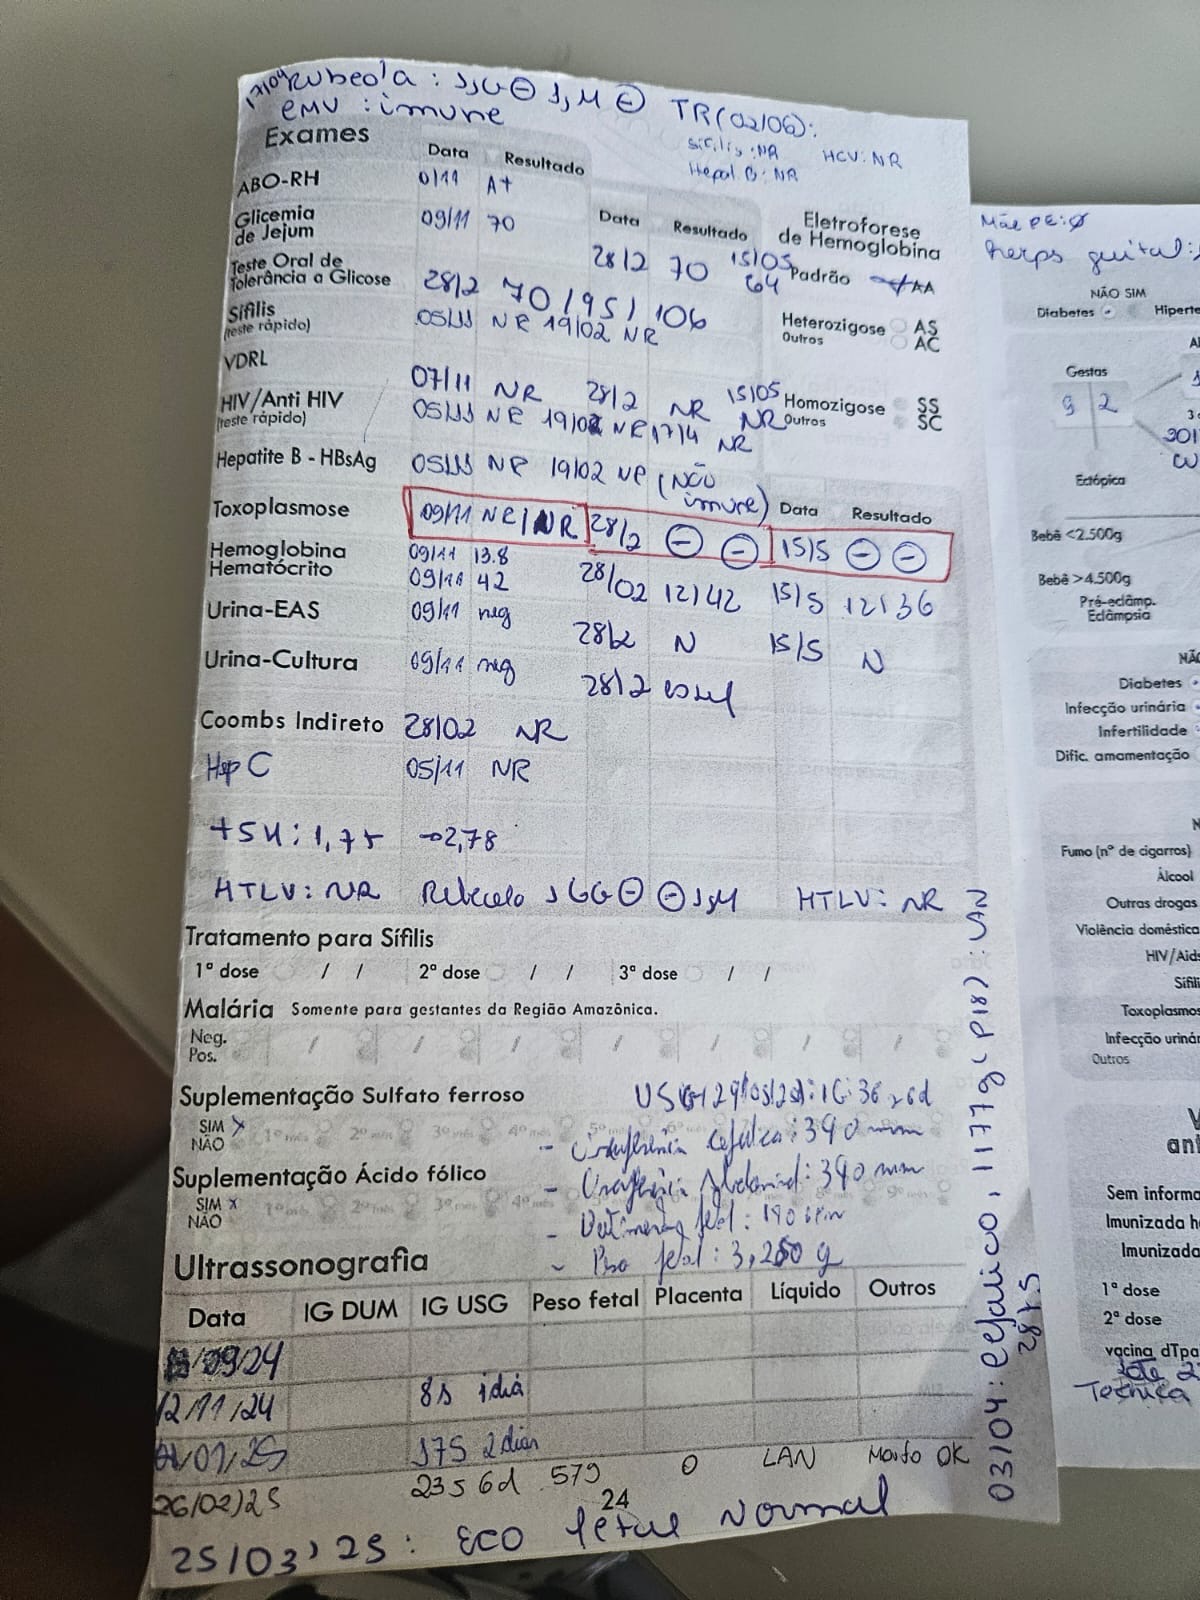 17/04 Rubeola: IgG ⊖ IgM ⊖ TR (02/06):
CMV : imune
Sífilis: NR HCV: NR
Hepat. B: NR
Exames Data Resultado
ABO-RH 0/11 A+
Glicemia de Jejum 09/11 70 Data Resultado
28/2 70 15/05 64
Teste Oral de
Tolerância a Glicose 28/2 70/95/106
Sífilis 05/11 NR 19/02 NR
(teste rápido)
VDRL 07/11 NR 28/2 NR 15/05 NR
HIV/Anti HIV 05/11 NR 19/02 NR 17/4 NR
(teste rápido)
Hepatite B - HBsAg 05/11 NR 19/02 NR (NÃO imune)
Data Resultado
Toxoplasmose 09/11 NR/NR 28/2 ⊖ ⊖ 15/5 ⊖ ⊖
Hemoglobina 09/11 13.8
Hematócrito 09/11 42 28/02 12/42 15/5 12/36
Urina-EAS 09/11 neg 28/2 N 15/5 N
Urina-Cultura 09/11 neg 28/2
Coombs Indireto 28/02 NR
Hep C 05/11 NR
TSH: 1,75 → 2,78
HTLV: NR IGG ⊖ ⊖ IgM HTLV: NR
Eletroforese
de Hemoglobina
Padrão AA
Heterozigose AS
Outros AC
Homozigose SS
Outros SC
Tratamento para Sífilis
1ª dose / / 2ª dose / / 3ª dose / /
Malária Somente para gestantes da Região Amazônica.
Neg.
Pos.
Suplementação Sulfato ferroso
SIM x
NÃO 1º mês 2º mês 3º mês 4º mês
Suplementação Ácido fólico
SIM x
NÃO 1º mês 2º mês 3º mês 4º mês
IG: 36s6d
- cefálica: 340 mm
- Abdominal: 340 mm
- fetal:
- Peso fetal: 3,250 g
Ultrassonografia
Data IG DUM IG USG Peso fetal Placenta Líquido Outros
/09/24
12/11/24 8s 1 dia
/01/25 17s 2 dias
26/02/25 23s 6d 579 0 LAN Morfo OK
24
25/03/25: ECO fetal Normal
03/04: cefálico, 1177g (P18) : LAN
28+5
Mãe PE: Ø
herps
NÃO SIM
Diabetes Hiperte
Gestas
9 2
Ectópica
Bebê <2.500g
Bebê >4.500g
Pré-eclâmp.
Eclâmpsia
NÃ
Diabetes
Infecção urinária
Infertilidade
Dific. amamentação
N
Fumo (nº de cigarros)
Álcool
Outras drogas
Violência doméstica
HIV/Aids
Sífili
Toxoplasmos
Infecção urinár
Outros
V
ant
Sem informa
Imunizada h
Imunizada
1ª dose
2ª dose
vacina dTpa
Tecnica